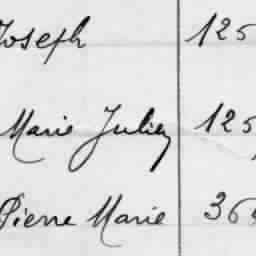 Joseph 125
Marie Julien 125
Pierre Marie 36